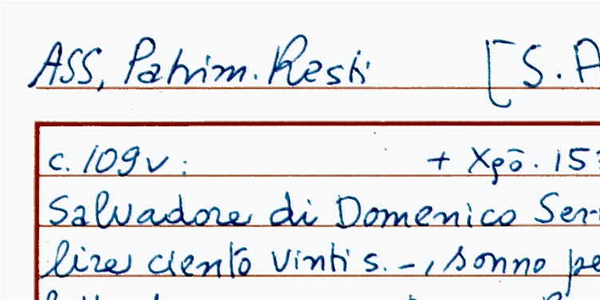 ASS, Patrim. Resti [S. A
c. 109v: + Xpō. 153
Salvadore di Domenico Ser
lire ciento vinti s. -, sonno pe